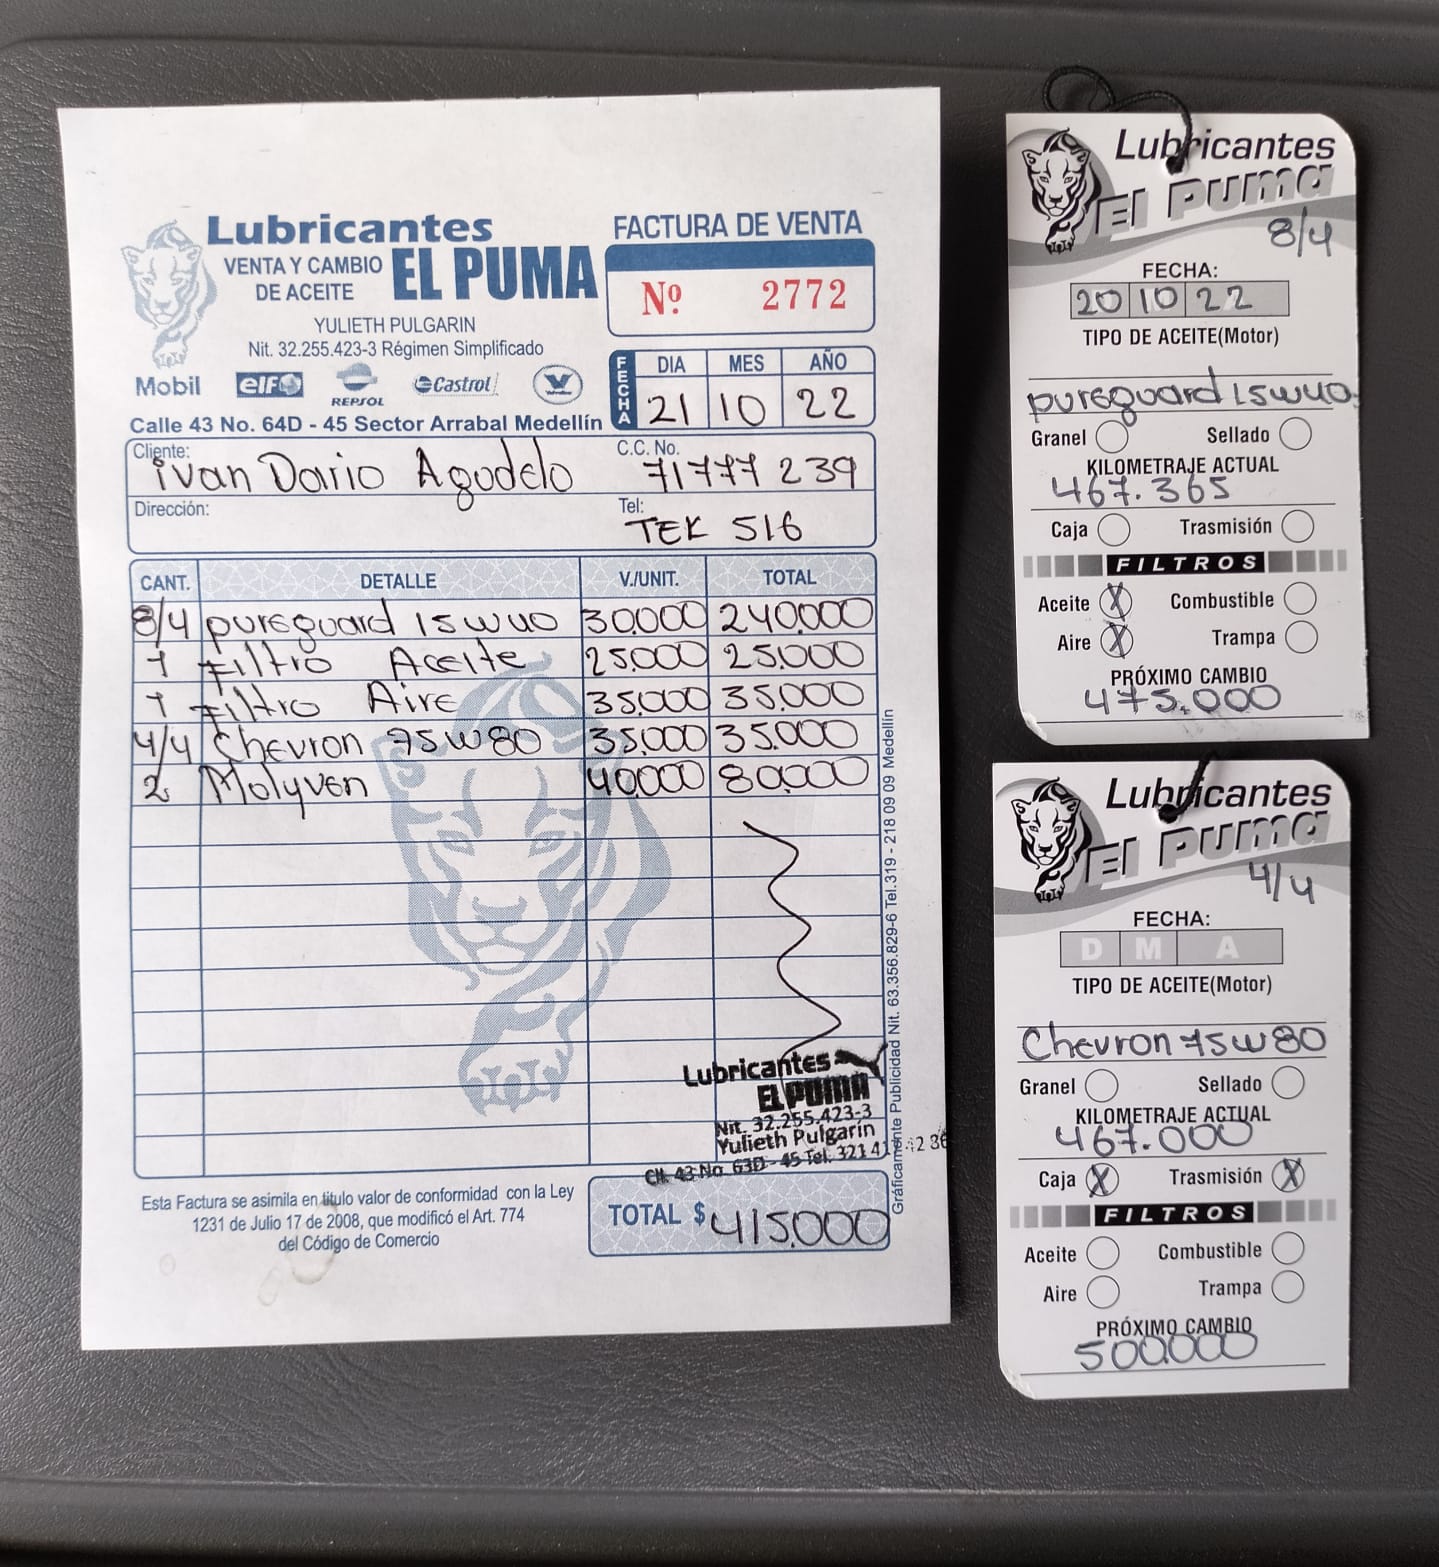 Lubricantes
EL PUMA
VENTA Y CAMBIO
DE ACEITE
YULIETH PULGARIN
Nit. 32.255.423-3 Régimen Simplificado
Mobil elf REPSOL Castrol V
Calle 43 No. 64D - 45 Sector Arrabal Medellín
FACTURA DE VENTA
Nº 2772
FECHA
DIA MES AÑO
21 10 22
Cliente: ivan Dario Agudelo
C.C. No. 71777239
Dirección:
Tel: TEK 516
CANT. DETALLE V./UNIT. TOTAL
8/4 pureguard 15w40 30.000 240.000
1 Filtro Aceite 25.000 25.000
1 Filtro Aire 35.000 35.000
4/4 Chevron 75w80 35.000 35.000
2 Molyven 40.000 80.000
Lubricantes
EL PUMA
Nit. 32.255.423-3
Yulieth Pulgarín
Cll. 43 No. 63D - 45 Tel. 321
Esta Factura se asimila en titulo valor de conformidad con la Ley
1231 de Julio 17 de 2008, que modificó el Art. 774
del Código de Comercio
TOTAL $ 415.000
Gráficamente Publicidad Nit. 63.356.829-6 Tel.319 - 218 09 09 Medellín
Lubricantes
El Puma
8/4
FECHA:
20 10 22
TIPO DE ACEITE(Motor)
pureguard 15w40.
Granel Sellado
KILOMETRAJE ACTUAL
467.365
Caja Trasmisión
FILTROS
Aceite X Combustible
Aire X Trampa
PRÓXIMO CAMBIO
475.000
Lubricantes
El Puma
4/4
FECHA:
D M A
TIPO DE ACEITE(Motor)
Chevron 75w80
Granel Sellado
KILOMETRAJE ACTUAL
467.000
Caja X Trasmisión X
FILTROS
Aceite Combustible
Aire Trampa
PRÓXIMO CAMBIO
500.000